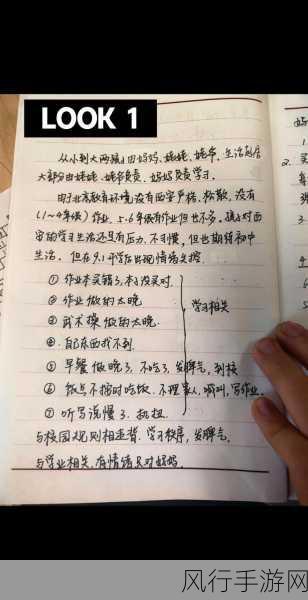 LOOK 1
从小到大两孩由妈妈、姥姥、姥爷、生活起居
大部分由姥姥、姥爷负责、妈妈负责学习。
由于北京教育环境没有西安严格、松散、没有
(1～4年级)作业、5.6年级有作业但也不多,孩子对西
安的学习生活还是有压力、不习惯,但也期待初中
生活。但在9.1开学后出现情绪失控
① 作业本买错了,本子没买对.
② 作业做的太晚
③ 武术操做的太晚.
④ 自己东西找不到.
⑤ 早餐做晚了、不吃了、发脾气,到校
⑥ 饭点不按时吃饭、不理家人、喊叫,写作业.
⑦ 听写说慢了、执拗
学习相关
与校园规则相违背、学习秩序,发脾气.
与学业相关,有情绪只对妈妈.
妈
1.
2.
风行手游网